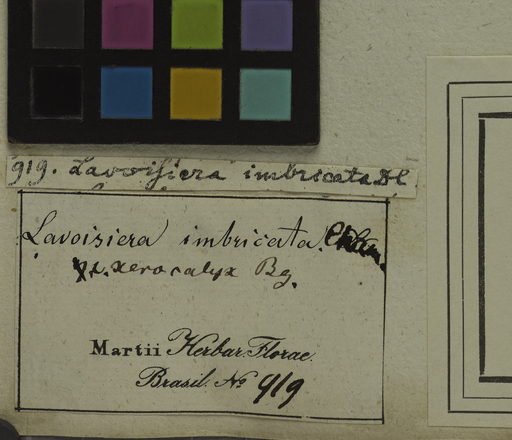 919. Lavoisiera imbricata DC
Lavoisiera imbricata. Cham.
xerocalyx Bg.
Martii Herbar. Florae
Brasil. No 919